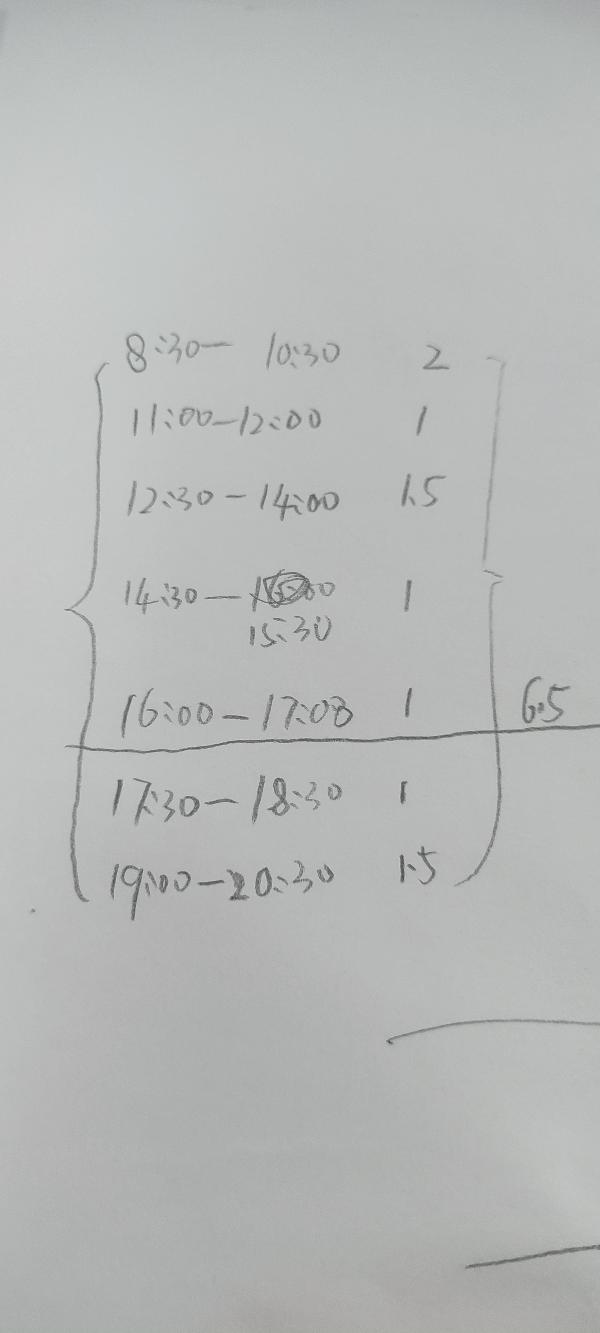 8:30— 10:30 2
11:00—12:00 1
12:30—14:00 1.5
14:30— 1
15:30
16:00—17:00 1 6.5
17:30—18:30 1
19:00—20:30 1.5